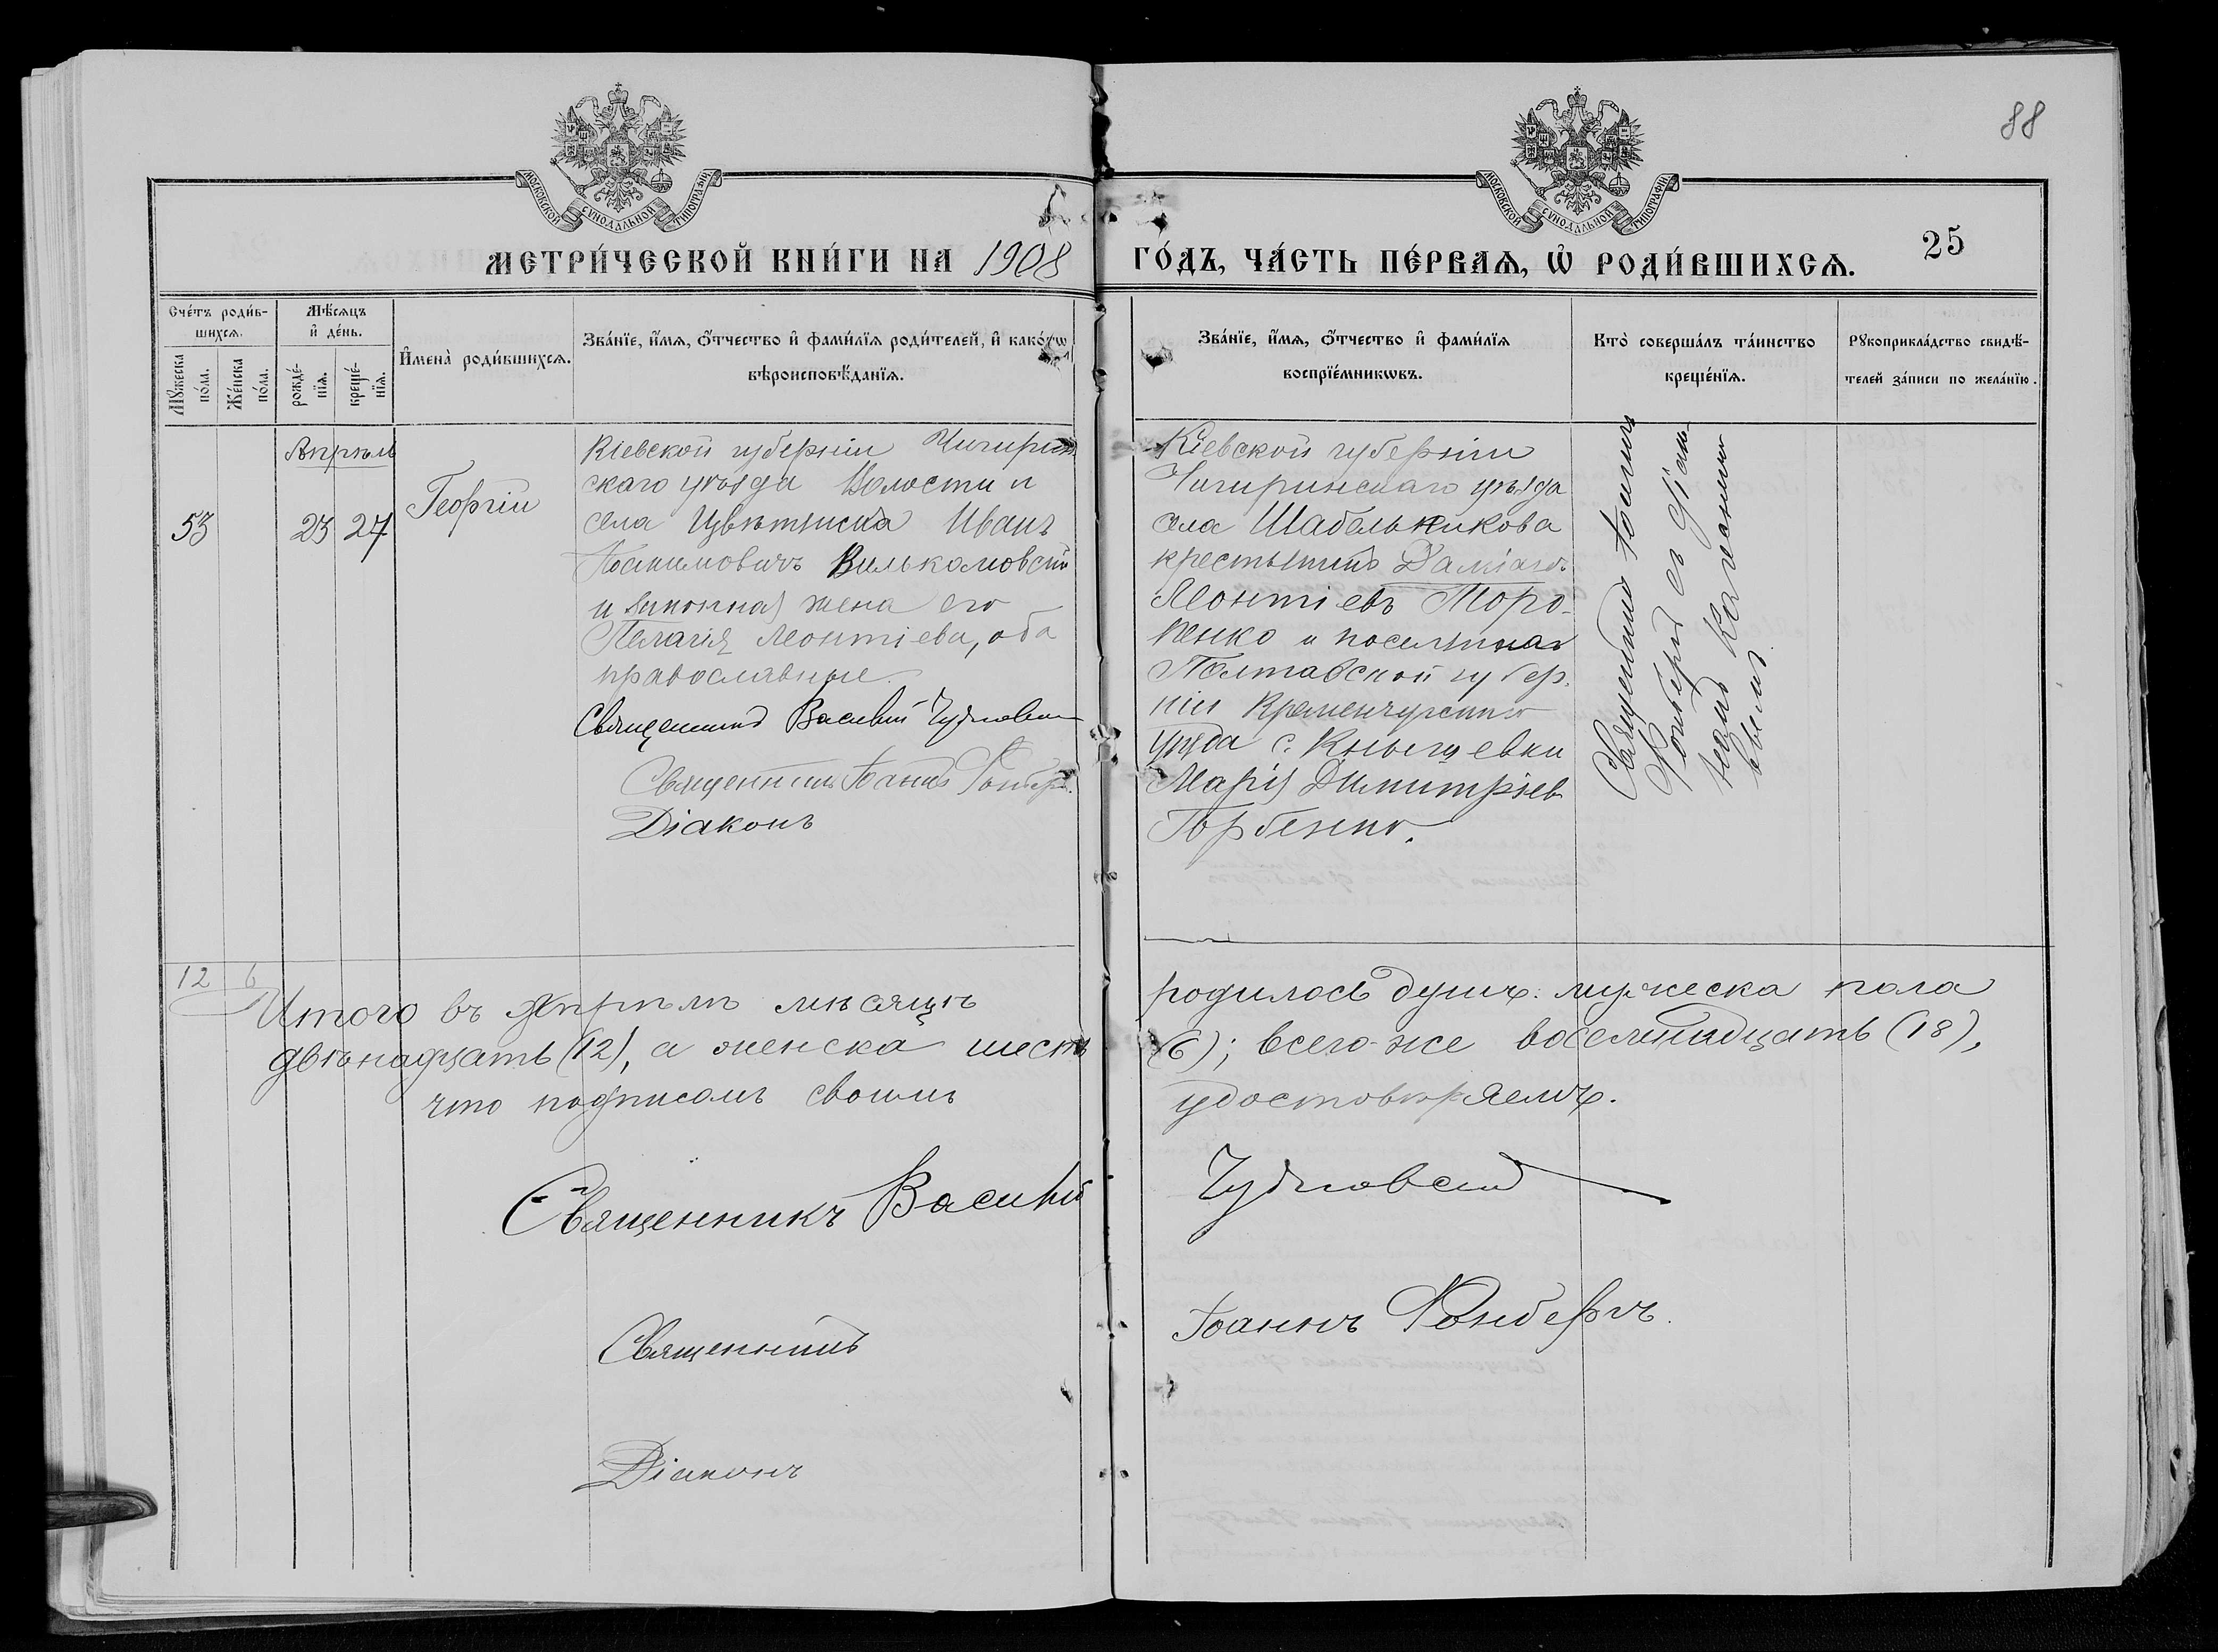 88
МОСКОВСКОЙ СѴНОДАЛЬНОЙ ТИПОГРАФІИ
МОСКОВСКОЙ СѴНОДАЛЬНОЙ ТИПОГРАФІИ
МЕТРИ́ЧЕСКОЙ КНИ́ГИ НА 1908 ГО́ДЪ, ЧА́СТЬ ПЕ́РВАЯ, Ѡ РОДИ́ВШИХСЯ.
25
Сче́тъ роди́в-
шихся.
Мѣ́сяцъ
и҆ де́нь.
Мꙋ́жеска
по́ла.
Же́нска
по́ла.
рожде́-
нїя.
креще́-
нїя.
И҆мена̀ роди́вшихся.
Зва́нїе, и҆́мя, ѻ҆́тчество и҆ фами́лїя роди́телей, и҆ како́гѡ
вѣроисповѣ́данїя.
Зва́нїе, и҆́мя, ѻ҆́тчество и҆ фами́лїя
воспрїе́мникѡвъ.
Кто̀ соверша́лъ та́инство
креще́нїя.
Рꙋкоприкла́дство свидѣ́-
телей за́писи по жела́нїю.
Апрѣль
53
23 27
Георгій
Кіевской губерніи Чигирин
скаго уѣзда Волости и
села Цвѣтинска Иванъ
Іоакимовичъ Вильколовскій
и законная жена его
Пелагія Леонтіева, оба
православные.
Священникъ Василій Чудновскій
Священникъ Іоаннъ Гонбергъ.
Діаконъ
Кіевской губерніи
Чигиринскаго уѣзда
села Шабельникова
крестьянинъ Даміанъ
Леонтіевъ Моро-
зенко и поселянка
Полтавской губер-
ніи Кременчугскаго
уѣзда с.
Марія Димитріев
Горбенко.
Священникъ Іоаннъ
съ Діако-
номъ
12 6
Итого въ Апрѣлѣ мѣсяцѣ родилось душъ: мужеска пола
двѣнадцать (12), а женска шесть (6); всего-же восемнадцать (18),
что подписомъ своимъ удостовѣряемъ.
Священникъ Василій Чудновскій
Священникъ Іоаннъ Гонбергъ.
Діаконъ